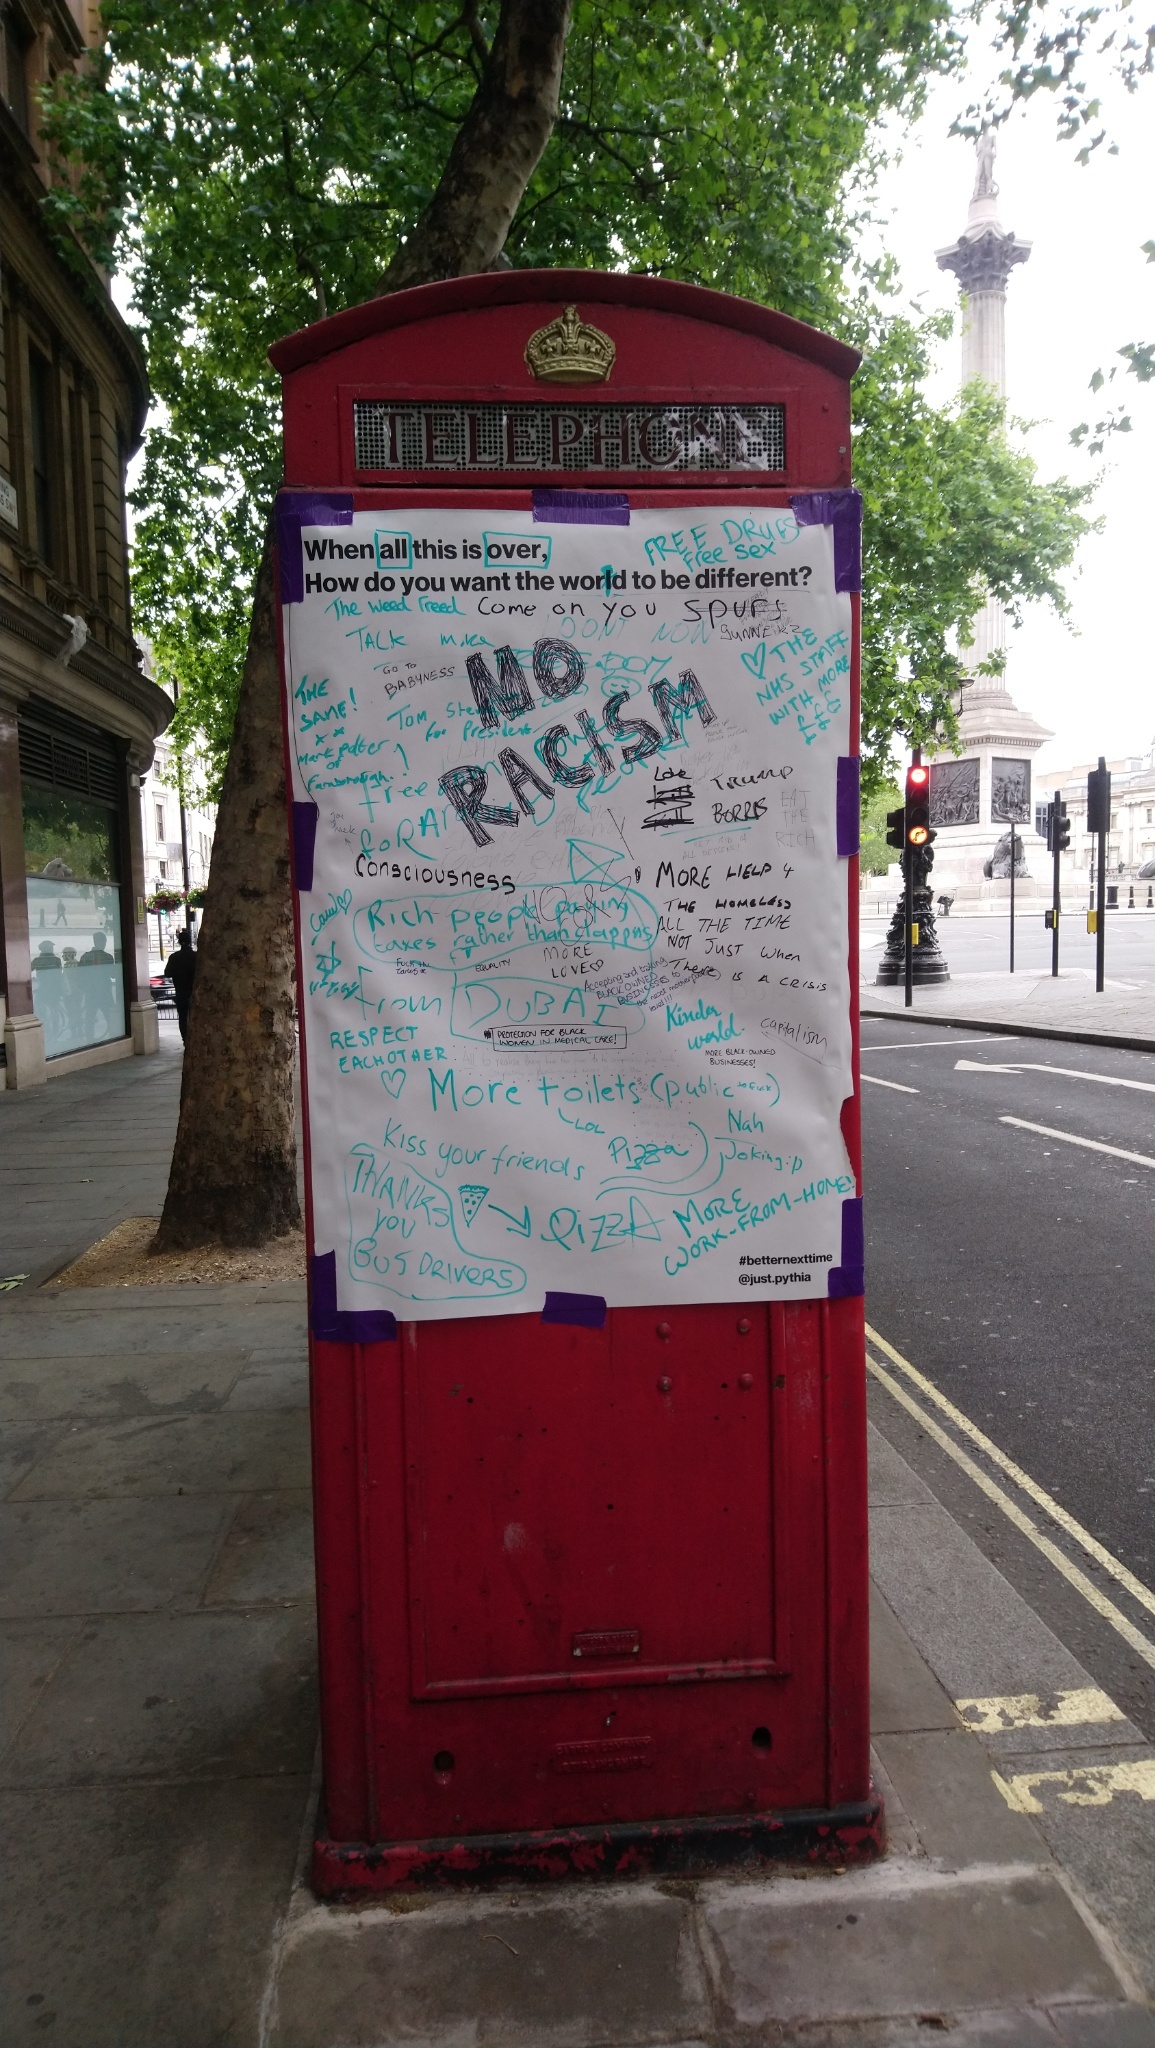 TELEPHONE
When all this is over,
How do you want the world to be different?
FREE DRUGS
Free sex
The weed freed
Come on you SPURS
TALK
DONT
NOW
GO TO
BABYNESS
NO
RACISM
♡ THE
NHS STAFF
WITH MORE
£££
THE
SAME!
x x
Mark Potter
of
Farnborough.
TOM
for President
free
FOR
Love
TRUMP
BORRIS
EAT
THE
RICH
Consciousness
MORE HELP 4
THE HOMELESS
ALL THE TIME
NOT JUST when
There is A CRISIS
Rich people paying
taxes rather than clapping
EQUALITY
MORE
LOVE♡
Accepting and taking
BLACK OWNED
BUSINESSES to
the next
level!!!
From DUBAI
PROTECTION FOR BLACK
WOMEN IN MEDICAL CARE!
Kinder
world.
capitalism
MORE BLACK-OWNED
BUSINESSES!
RESPECT
EACHOTHER
♡
More toilets (public)
LOL
Nah
Joking :p
Kiss your friends
Pizza
THANKS
YOU
BUS DRIVERS
PIZZA
MORE
WORK-FROM-HOME!
#betternexttime
@just.pythia